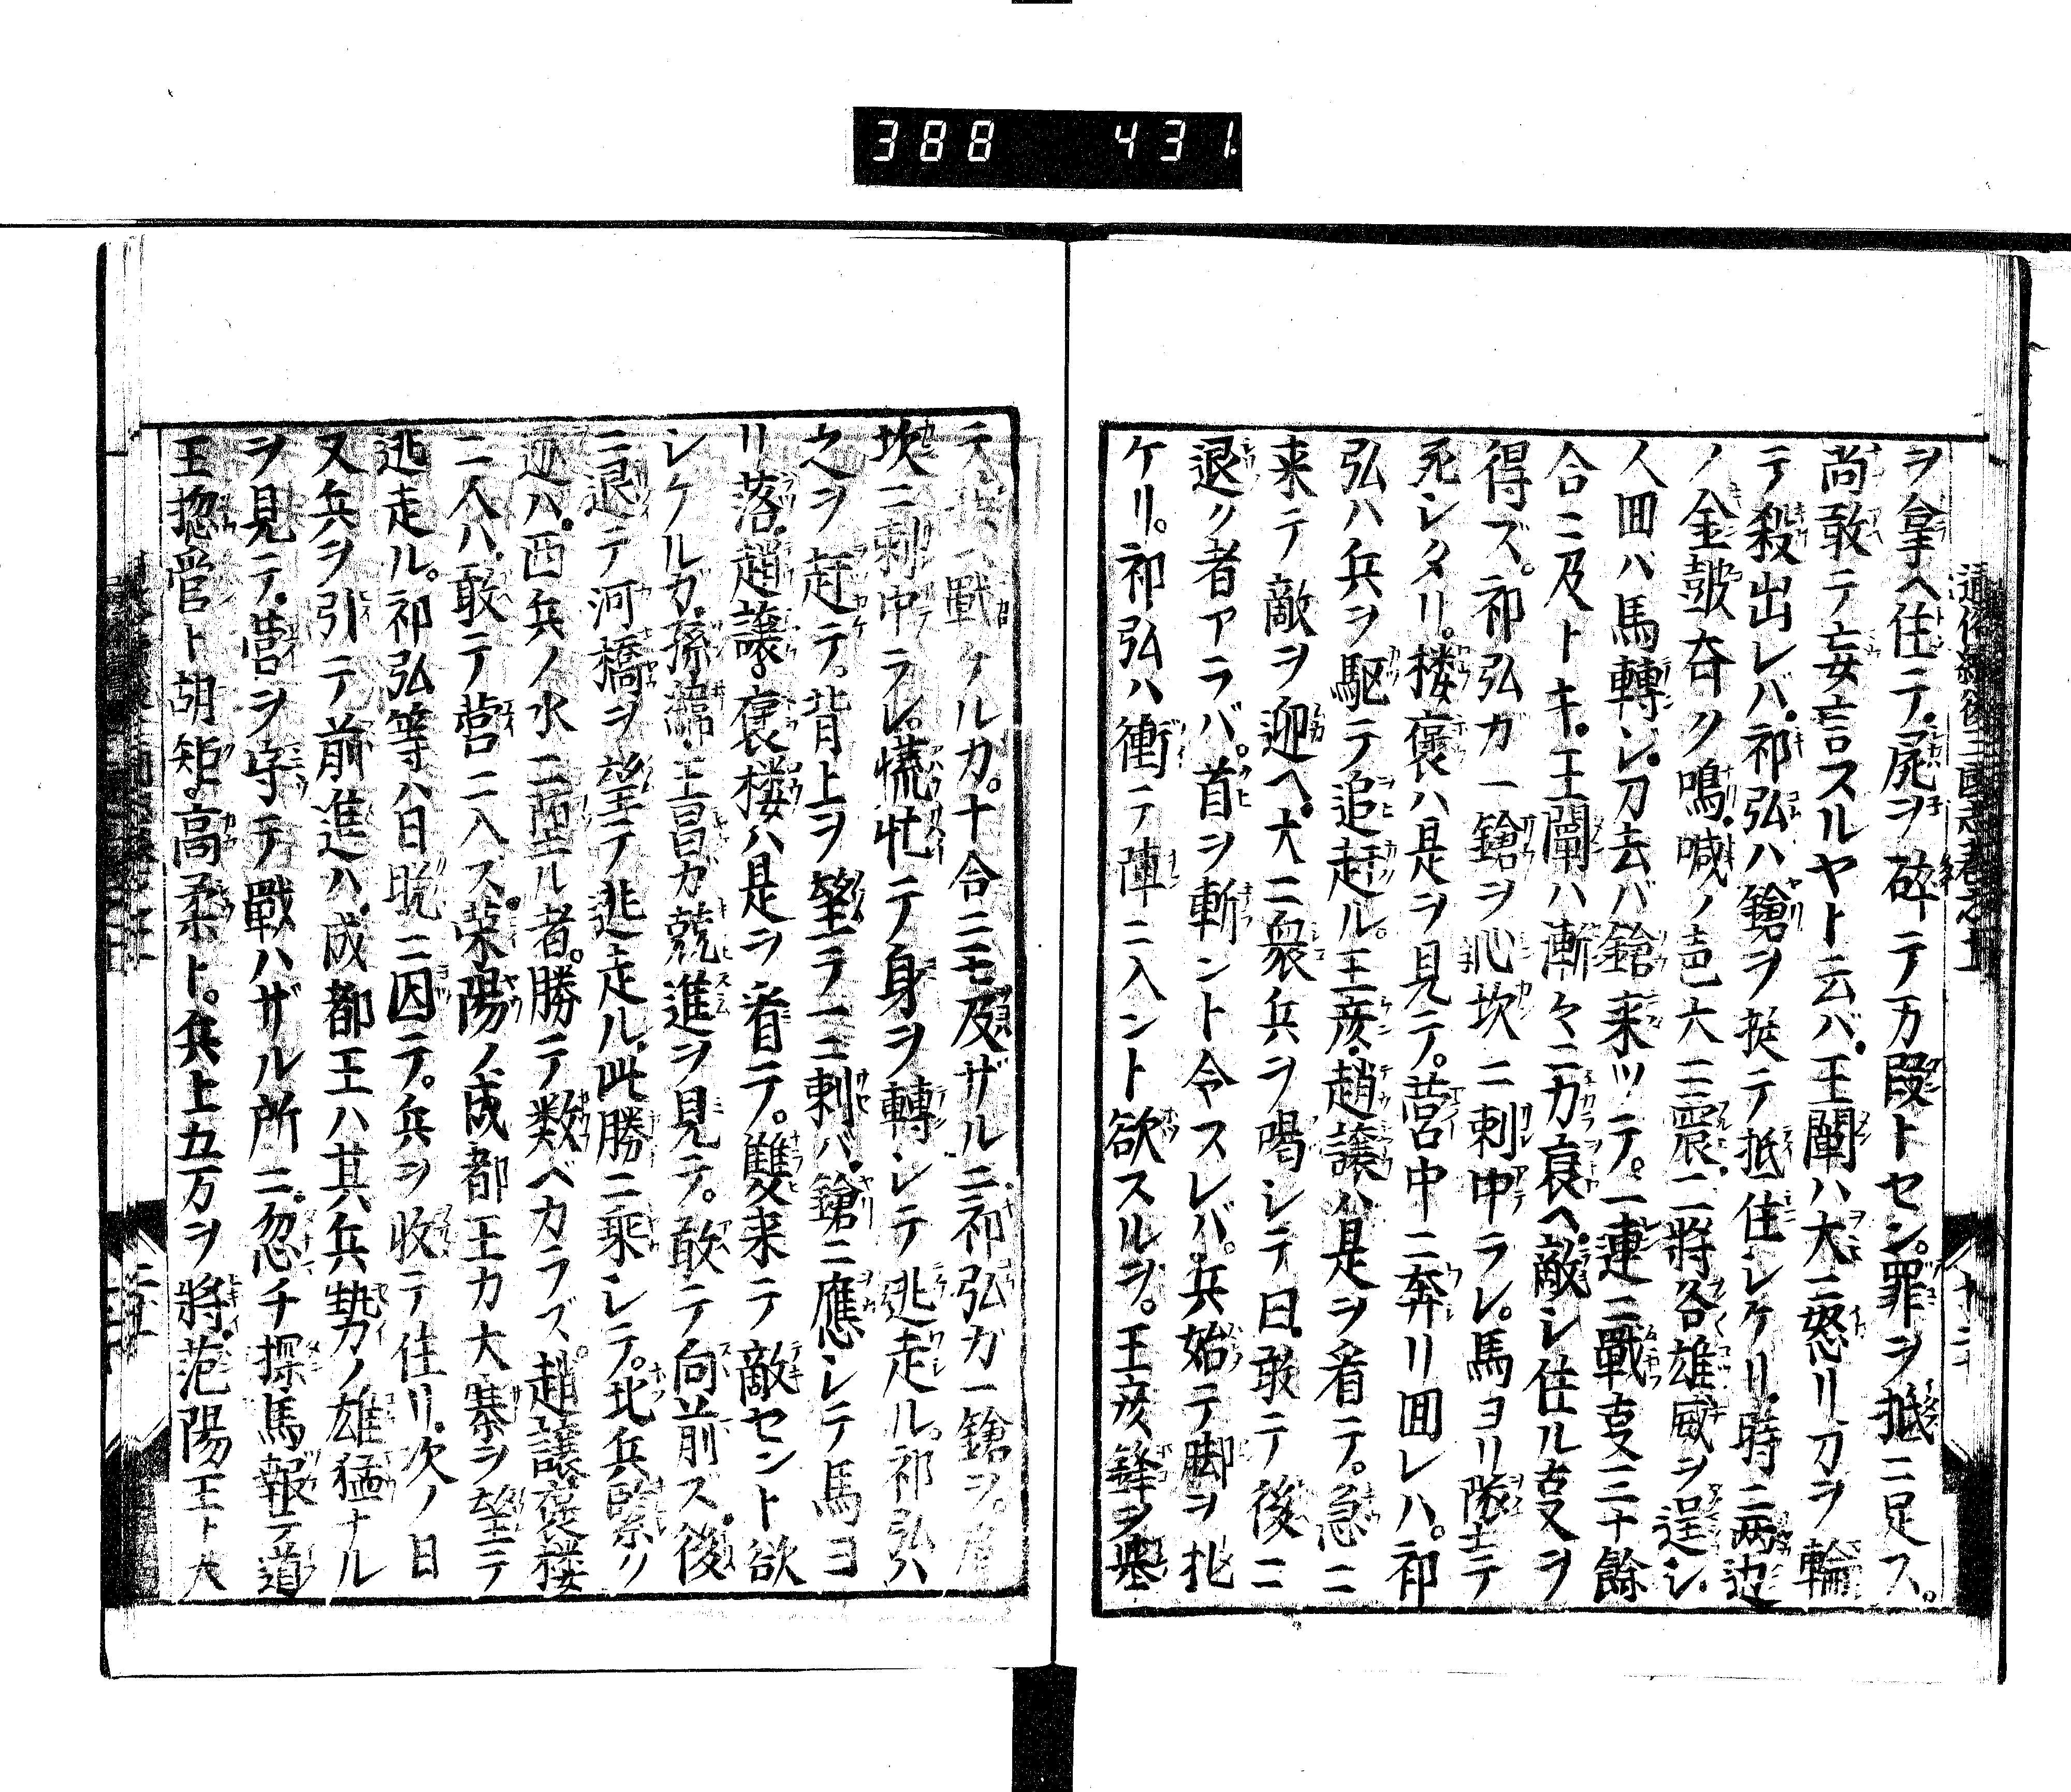 388 431
ヲ拿ヘ住テ。屍ヲ砕テ万段トセン。罪ヲ抵ニ足ス。
尚敢テ妄言スルヤト云バ。王闡ハ大ニ怒リ刀ヲ輪
テ殺出レバ。祁弘ハ鎗ヲ挺テ抵住シケリ。時ニ両辺
ノ金鼓斉ク鳴。喊ノ声大ニ震。二將各雄威ヲ逞シ
人回ハ馬轉シ。刀去バ鎗来ツテ。一連ニ戰叓三十餘
合ニ及トキ。王闡ハ漸々ニ力衰ヘ。敵シ住ル叓ヲ
得ズ。祁弘ガ一鎗ヲ心坎ニ刺中ラレ。馬ヨリ隊テ
死シタリ。楼褒ハ是ヲ見テ。営中ニ奔リ回レハ。祁
弘ハ兵ヲ駆テ追赶ル。王彦。趙譲ハ是ヲ看テ。急ニ
来テ敵ヲ迎ヘ。大ニ衆兵ヲ喝シテ曰。敢テ後ニ
退ク者アラバ。首ヲ斬ント令スレバ。兵始テ脚ヲ扎
ケリ。祁弘ハ衝テ陣ニ入ント欲スルヲ。王彦鋒ヲ挙
テ戰ケルカ。十合ニモ及ザルニ。祁弘カ一鎗ヲ。肩
坎ニ刺中ラレ。慌忙テ身ヲ轉シテ逃走ル。祁弘ハ
之ヲ赶テ。背上ヲ望テ一ニ刺バ。鎗ニ應シテ馬ヨ
リ落。趙譲。褒楼ハ是ヲ看テ。雙来テ敵セント欲
シケルガ。孫緯。王昌ガ競進ヲ見テ。敢テ向前ズ。後
ニ退テ河橋ヲ望テ逃走ル。此勝ニ乘シテ。北兵緊ク
迫ハ。西兵ノ水ニ墜ル者。勝テ数ベカラズ。趙譲。褒楼
二人ハ。敢テ営ニ入ズ。荣陽ノ成都王カ大寨ヲ望テ
逃走ル。祁弘等ハ日晩ニ因テ。兵ヲ收テ住リ。次ノ日
又兵ヲ引テ前進ハ。成都王ハ其兵勢ノ雄猛ナル
ヲ見テ。営ヲ守テ戰ハザル所ニ。忽チ探馬報テ道
王惣管ト胡矩。高柔ト。兵上五万ヲ將。范陽王ト大